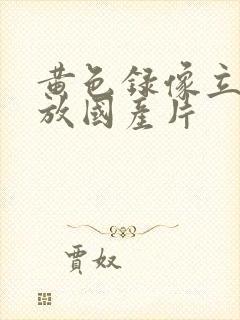 黄色録像立
放國産片
賈奴